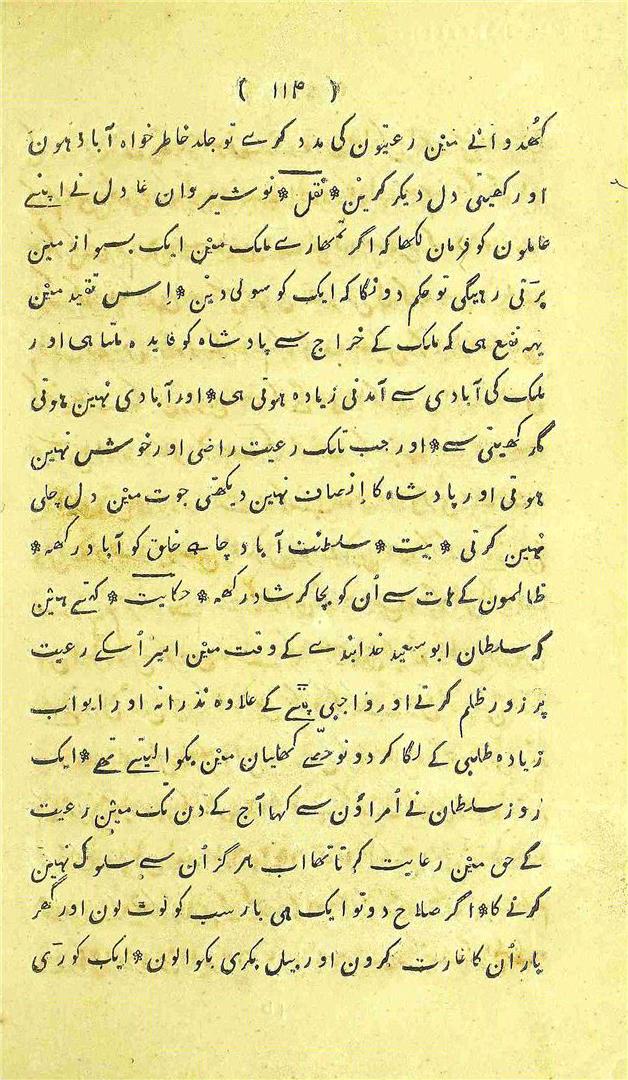 ( ۱۱۴ )
کھُدوانے میں رعیتون کی مدد کرسے تو جلد خاطر خواہ آباد ہون
اور کھیتی دل دیکر کرین * نقل * نوشیروان عادل نے اپنے
عاملون کو فرمان لکھا کہ اگر تمھارے ملک میں ایک بسواز مین
پرتی رہیگی تو حکم دونگا کہ ایک کو سولی دین * اِس تقید مین
یہہ نفع ہی کہ ملک کے خراج سے پادشاہ کو فایدہ ملتا ہی اور
ملک کی آبادی سے آمدنی زیادہ ہوتی ہی * اور آبادی نہین ہوتی
مگر کھیتی سے * اور جب تلک رعیت راضی اور خوش نہین
ہوتی اور پادشاہ کا اِنصاف نہین دیکھتی جوت مین دل چلی
نہین کرتی * بیت * سلطنت آباد چاہے خلق کو آباد رکھہ *
ظالمون کے ہات سے اُن کو بچا کر شاد رکھہ * حکایت * کہتے ہین
کہ سلطان ابو سعید خدابندے کے وقت مین امیر اُسکے رعیت
پر زور ظلم کرتے اور واجبی پتّے کے علاوہ نذرانہ اور ابواب
زیادہ طلبی کے لگا کر دونو حصّے کھلیان مین بکوا لیتے تھے * ایک
روز سلطان نے اُمراؤن سے کہا آج کے دن تک مین رعیت
کے حق مین رعایت کرتا تھا اب ہرگز اُن سے سلوک نہین
کرنے کا * اگر صلاح دو تو ایک ہی بار سب کو لوٹ لون اور گھر
بار اُن کا غارت کرون اور بیل بکری بکوا لون * ایک کوڑی